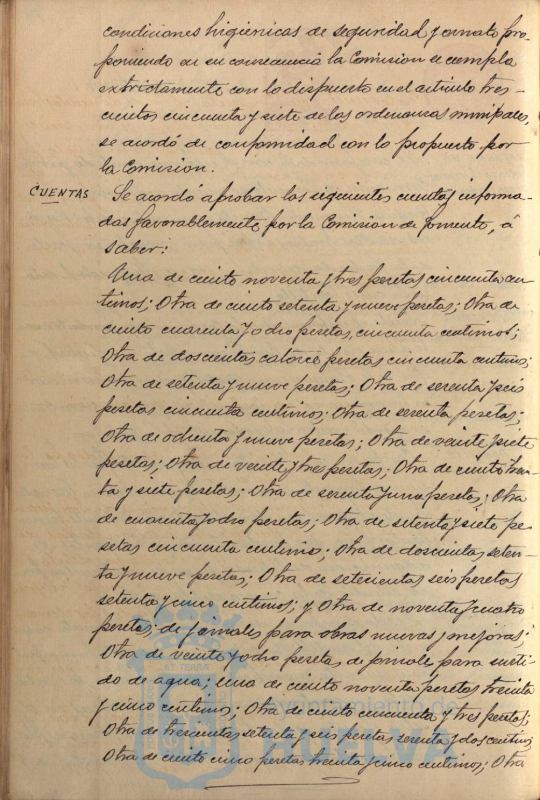 condiciones higienicas de seguridad y ornato pro-
poniendo en su consecuencia la Comision se cumpla
extrictamente con lo dispuesto en el articulo tres-
cientos cincuenta y siete de las ordenanzas munipales,
se acordó de conformidad con lo propuesto por
la Comision.
CUENTAS
Se acordó aprobar las siguientes cuentas informa-
das favorablemente por la Comision de fomento, á
saber:
Una de ciento noventa y tres pesetas cincuenta cen-
timos; Otra de ciento setenta y nueve pesetas; Otra de
ciento cuarenta y ocho pesetas, cincuenta centimos;
Otra de doscientas catorce pesetas cincuenta centimos;
Otra de setenta y nueve pesetas; Otra de sesenta y seis
pesetas cincuenta centimos; Otra de sesenta pesetas;
Otra de ochenta y nueve pesetas; Otra de veinte y siete
pesetas; Otra de veinte y tres pesetas; Otra de ciento trein-
ta y siete pesetas; Otra de sesenta y una pesetas; Otra
de cuarenta y ocho pesetas; Otra de setenta y siete pe
setas cincuenta centimos; Otra de doscientas seten-
ta y nueve pesetas; Otra de setecientas seis pesetas
setenta y cinco centimos; y Otra de noventa y cuatro
pesetas; de jornales para obras nuevas y mejoras;
Otra de veinte y ocho pesetas de jornales para surti-
do de agua; una de ciento noventa pesetas treinta
y cinco centimos; Otra de ciento cincuenta y tres pesetas;
Otra de trescientas setenta y seis pesetas sesenta y dos centimos;
Otra de ciento cinco pesetas treinta y cinco centimos; Otra
Ayuntamiento de
HUELVA